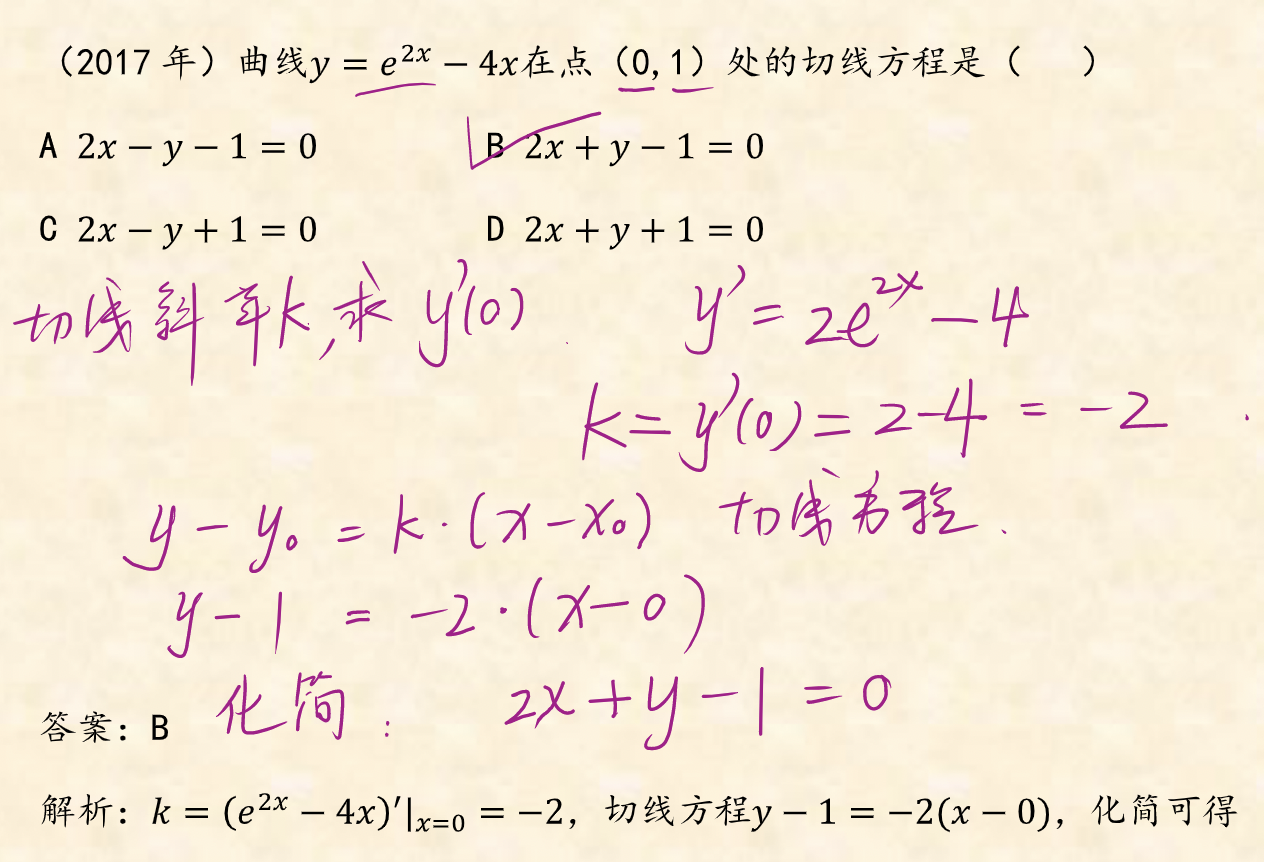 （2017 年）曲线y = e^{2x} − 4x在点（0, 1）处的切线方程是（    ）
A 2x − y − 1 = 0    B 2x + y − 1 = 0
C 2x − y + 1 = 0    D 2x + y + 1 = 0
切线斜率k,求 y'(0)    y' = 2e^{2x} − 4
k = y'(0) = 2−4 = −2
y − y₀ = k·(x − x₀)  切线方程.
y − 1 = −2·(x−0)
化简:    2x + y − 1 = 0
答案：B
解析：k = (e^{2x} − 4x)′|_{x=0} = −2，切线方程y − 1 = −2(x − 0)，化简可得